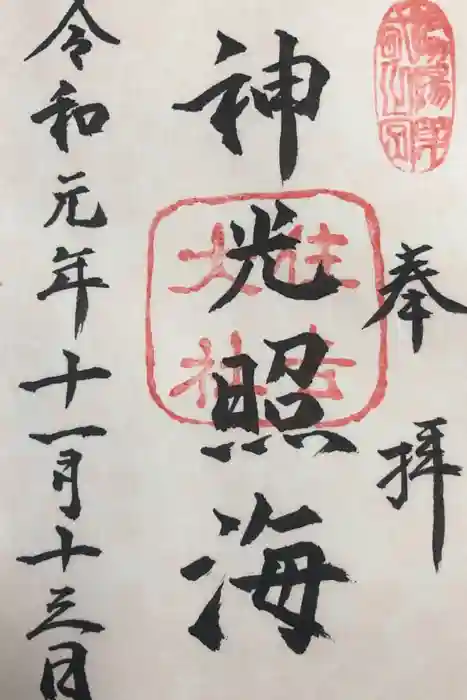 奉拝
神光照海
住吉
大社
令和元年十一月十三日